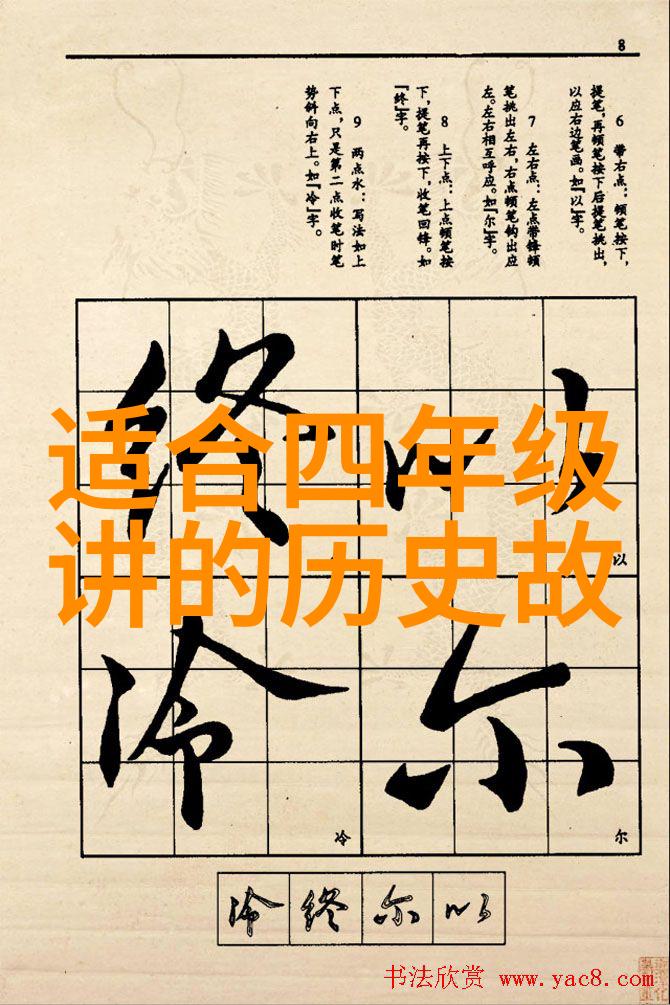 8
6 带右点：顿笔按下，
提笔，再顿笔按下后提笔挑出，
以应右边笔画。如『以』字。
7 左右点：左点带锋顿
笔挑出左右，右点顿笔钩出应
左。左右相互呼应。如『尔』字。
8 上下点：上点顿笔按
下，提笔再按下，收笔回锋。如
『终』字。
9 两点水：写法如上
下点，只是第二点收笔时笔
势斜向右上。如『冷』字。
终 以
适合四年级
讲的历史故
以
冷 尔
冷 尔
冷 终 尔 以
书法欣赏 www.yac8.com